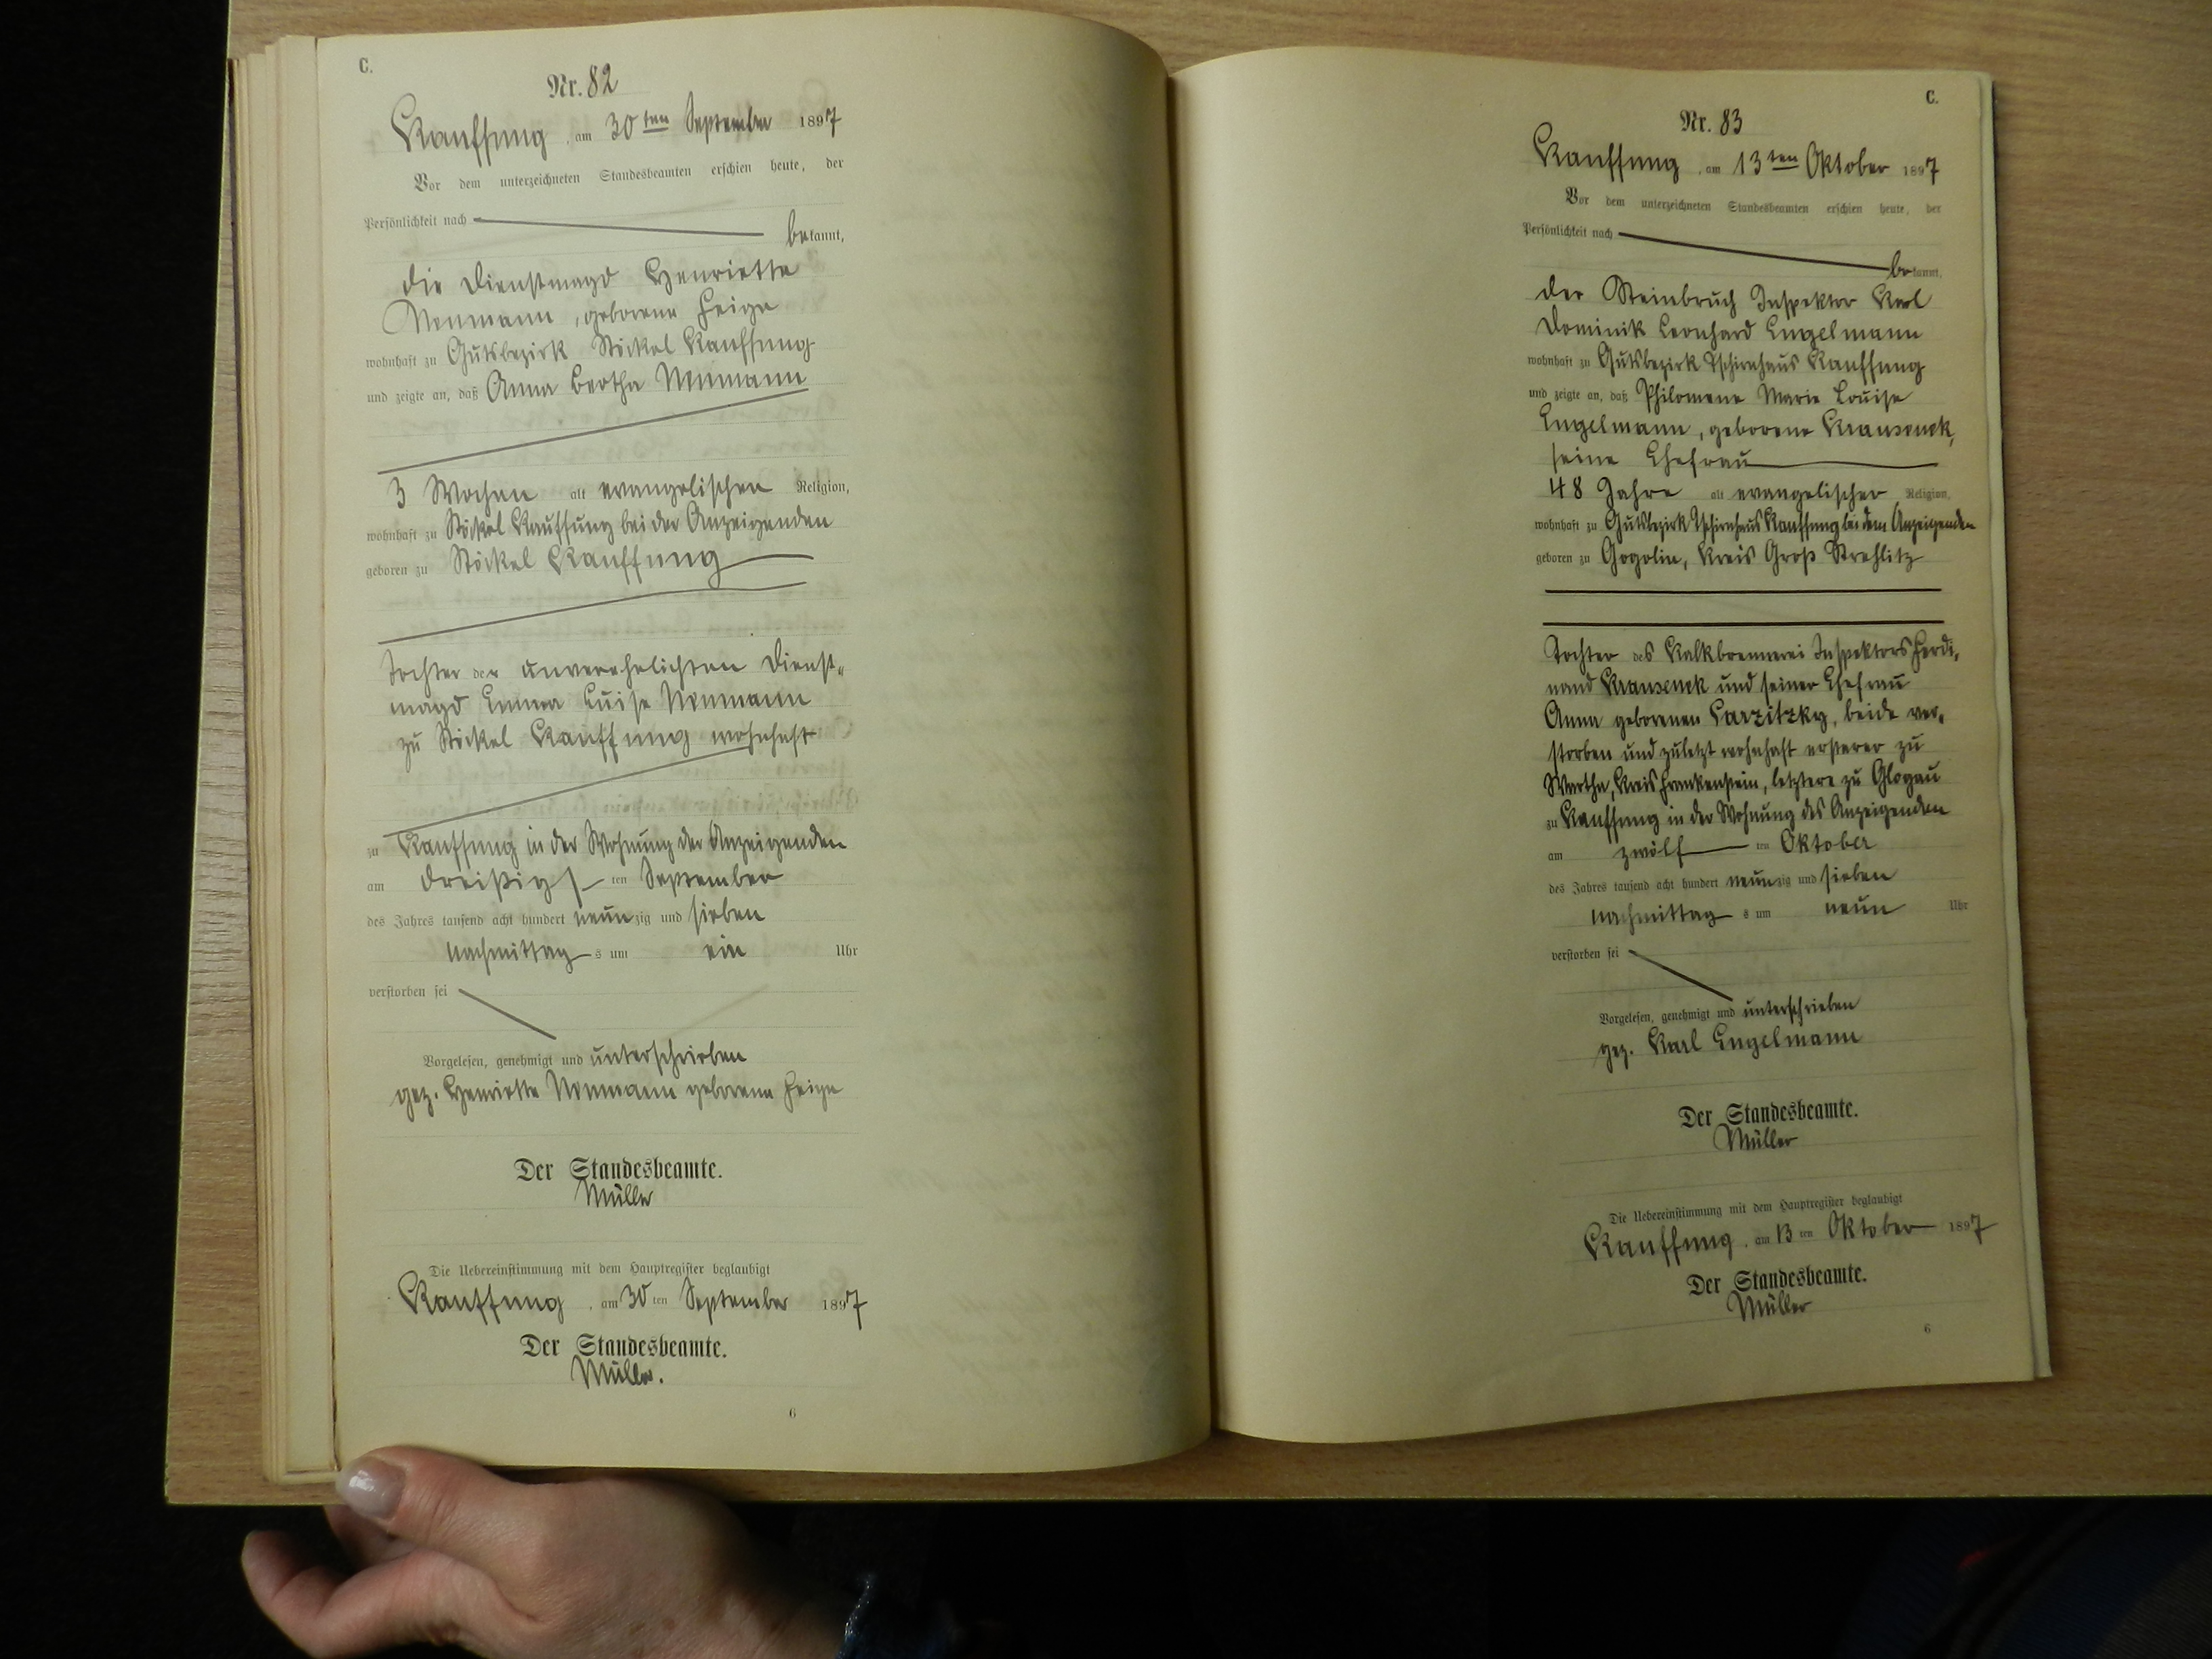 C.
Nr. 82
Kauffung, am 30ten September 1897
Vor dem unterzeichneten Standesbeamten erschien heute, der
Persönlichkeit nach
bekannt,
die Dienstmagd Henriette
Neumann, geborene Feige
wohnhaft zu Gutsbezirk Stöckel Kauffung
und zeigte an, daß Anna Bertha Neumann
3 Wochen alt evangelischen Religion,
wohnhaft zu Stöckel Kauffung bei der Anzeigenden
geboren zu Stöckel Kauffung
Tochter der unverehelichten Dienst-
magd Emma Luise Neumann
zu Stöckel Kauffung wohnhaft
zu Kauffung in der Wohnung der Anzeigenden
am dreißigs ten September
des Jahres tausend acht hundert neunzig und sieben
nachmittags um ein Uhr
verstorben sei
Vorgelesen, genehmigt und unterschrieben
gez. Henriette Neumann geborene Feige
Der Standesbeamte.
Müller
Die Uebereinstimmung mit dem Hauptregister beglaubigt
Kauffung, am 30 ten September 1897
Der Standesbeamte.
Müller.
6
C.
Nr. 83
Kauffung, am 13ten Oktober 1897
Vor dem unterzeichneten Standesbeamten erschien heute, der
Persönlichkeit nach
bekannt,
der Steinbruch Inspektor Karl
Dominik Leonhard Engelmann
wohnhaft zu Gutsbezirk Tschirnhaus Kauffung
und zeigte an, daß Philomene Marie Louise
Engelmann, geborene Krausenek,
seine Ehefrau
48 Jahre alt evangelischer Religion,
wohnhaft zu Gutsbezirk Tschirnhaus Kauffung bei dem Anzeigenden
geboren zu Gogolin, Kreis Groß Strehlitz
Tochter des Kalkbrennerei Inspektors Ferdi-
nand Krausenek und seiner Ehefrau
Anna geborenen Larzitzky, beide ver-
storben und zuletzt wohnhaft ersterer zu
Wartha, Kreis Frankenstein, letztere zu Glogau
zu Kauffung in der Wohnung des Anzeigenden
am zwölf ten Oktober
des Jahres tausend acht hundert neunzig und sieben
nachmittags um neun Uhr
verstorben sei
Vorgelesen, genehmigt und unterschrieben
gez. Karl Engelmann
Der Standesbeamte.
Müller
Die Uebereinstimmung mit dem Hauptregister beglaubigt
Kauffung, am 13 ten Oktober 1897
Der Standesbeamte.
Müller
6